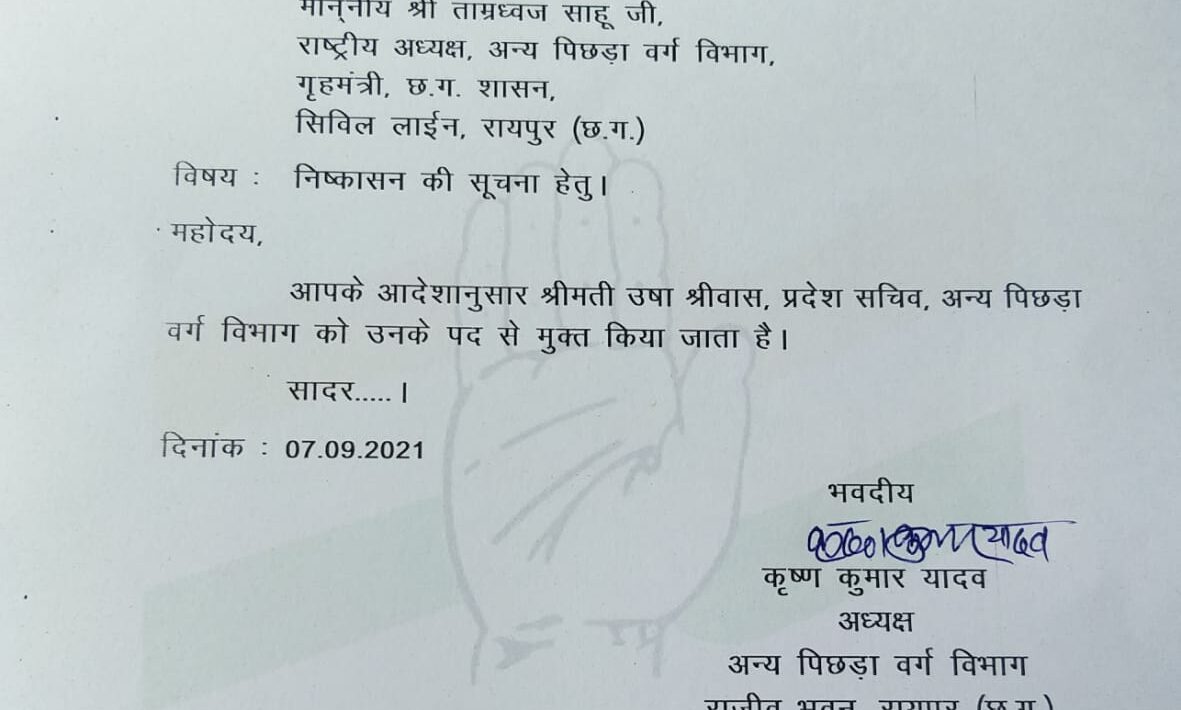 मान्नीय श्री ताम्रध्वज साहू जी,
राष्ट्रीय अध्यक्ष, अन्य पिछड़ा वर्ग विभाग,
गृहमंत्री, छ.ग. शासन,
सिविल लाईन, रायपुर (छ.ग.)
विषय : निष्कासन की सूचना हेतु।
महोदय,
आपके आदेशानुसार श्रीमती उषा श्रीवास, प्रदेश सचिव, अन्य पिछड़ा
वर्ग विभाग को उनके पद से मुक्त किया जाता है।
सादर.....।
दिनांक : 07.09.2021
भवदीय
कृष्ण कुमार यादव
कृष्ण कुमार यादव
अध्यक्ष
अन्य पिछड़ा वर्ग विभाग
राजीव भवन, रायपुर (छ.ग.)